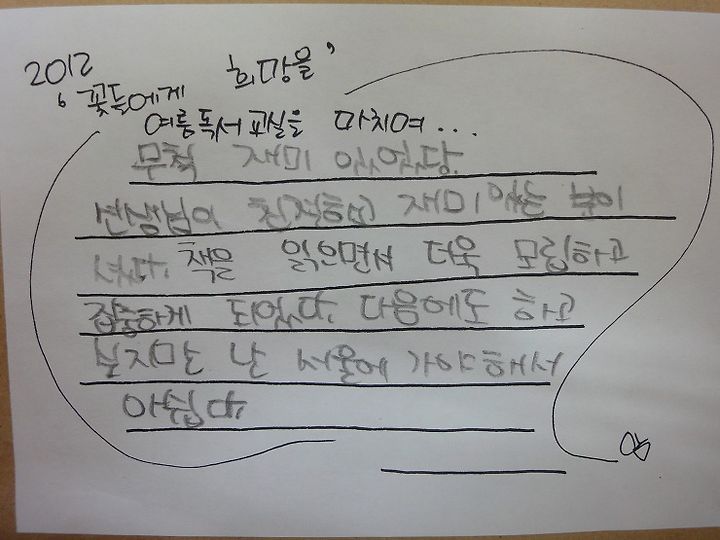 2012
'꽃들에게 희망을'
여름독서교실을 마치며...
무척 재미 있었다.
선생님이 친절하고 재미있는 분이
셨다. 책을 읽으면서 더욱 몰입하고
집중하게 되었다. 다음에도 하고
싶지만 난 서울에 가야 해서
아쉽다.